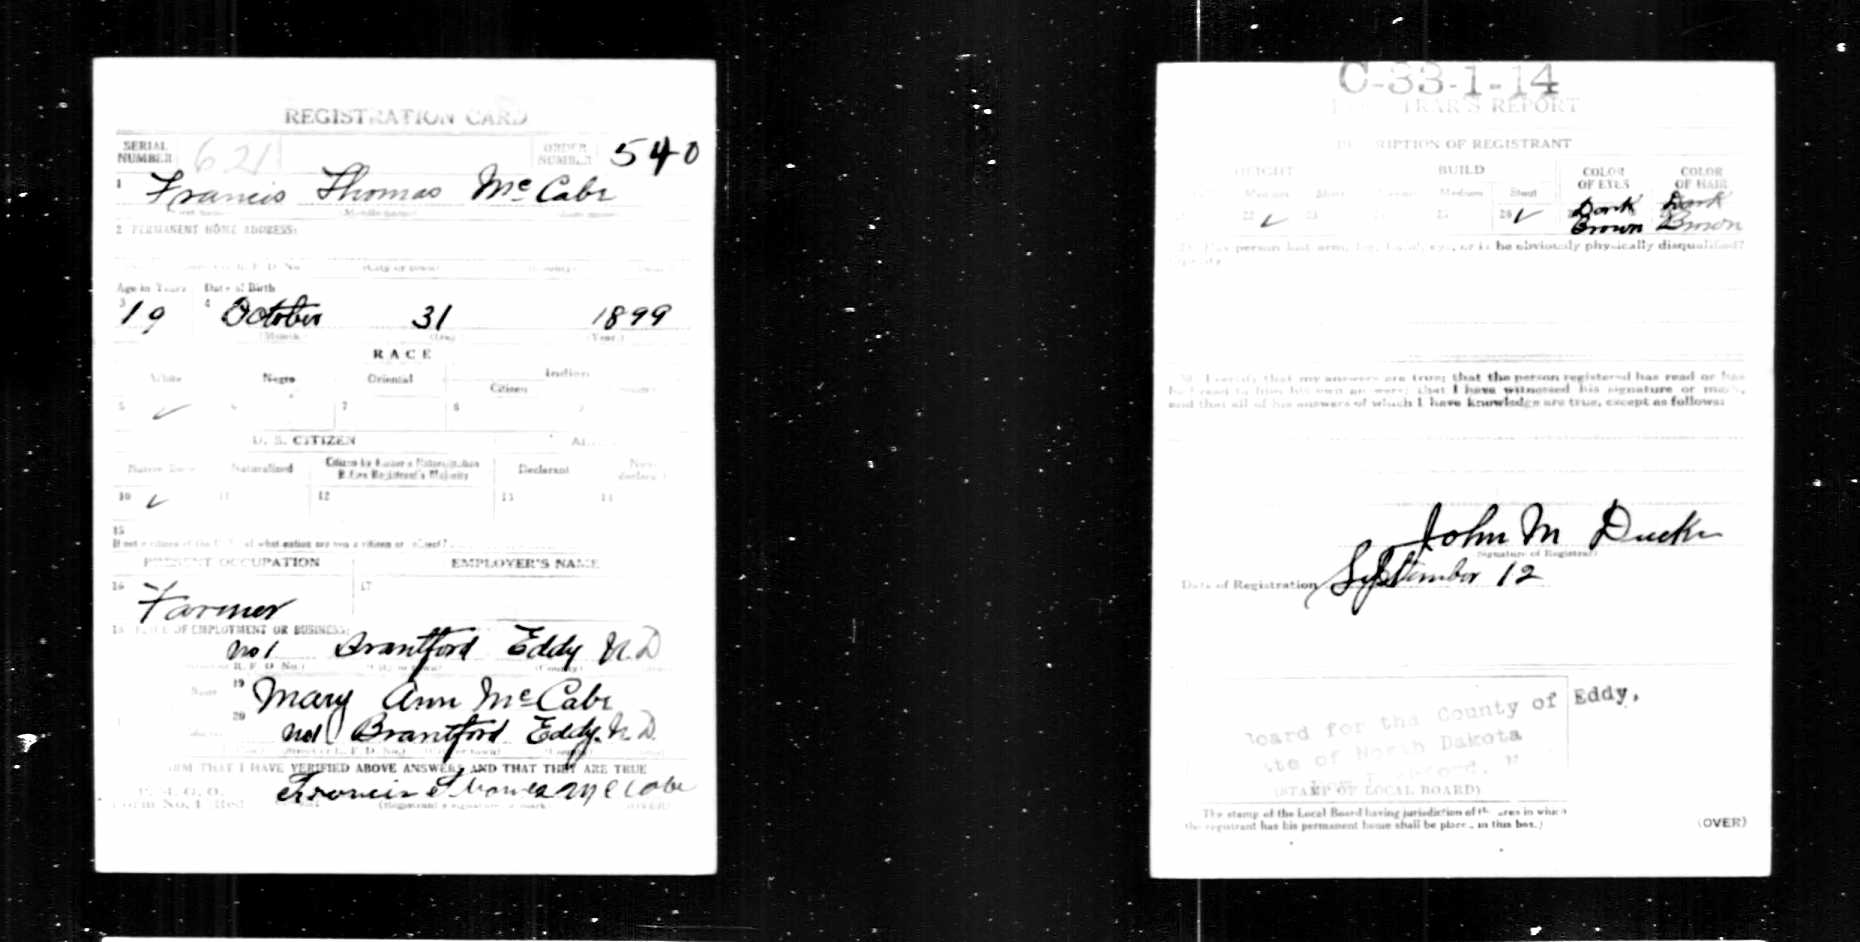 REGISTRATION CARD
SERIAL NUMBER 621 ORDER NUMBER 540
1 Francis Thomas McCabe
(Middle name)
2 PERMANENT HOME ADDRESS:
R. F. D. No. (City or town) (County)
Age in Years Date of Birth
3 19 4 October 31 1899
(Month) (Day) (Year)
RACE
White Negro Oriental Indian
Citizen
5 ✓ 6 7 8 9
U. S. CITIZEN
Native Born Naturalized Citizen by Father's Naturalization Before Registrant's Majority Declarant Non-declarant
10 ✓ 11 12 13 14
15
If not a citizen of the U. S., of what nation are you a citizen or subject?
PRESENT OCCUPATION EMPLOYER'S NAME
16 Farmer 17
18 PLACE OF EMPLOYMENT OR BUSINESS:
No 1 Brantford Eddy N.D
R. F. D. No.) (City or town) (County)
Name 19 Mary Ann McCabe
20 No 1 Brantford Eddy N.D.
THAT I HAVE VERIFIED ABOVE ANSWERS AND THAT THEY ARE TRUE
Form No. 1 Red Francis Thomas McCabe
(Registrant's signature or mark) (OVER)
C-33-1-14
REGISTRAR'S REPORT
DESCRIPTION OF REGISTRANT
HEIGHT BUILD COLOR OF EYES COLOR OF HAIR
Medium Short Medium Stout
22 ✓ 23 25 26 ✓ Dark Brown Dark Brown
person lost arm, leg, hand, eye, or is he obviously physically disqualified?
30 I certify that my answers are true; that the person registered has read or has
had read to him his own answers; that I have witnessed his signature or mark,
and that all of his answers of which I have knowledge are true, except as follows:
John M
(Signature of Registrar)
Date of Registration September 12
Board for the County of Eddy,
State of North Dakota
(STAMP OF LOCAL BOARD)
The stamp of the Local Board having jurisdiction of the area in which
the registrant has his permanent home shall be placed in this box.)
(OVER)